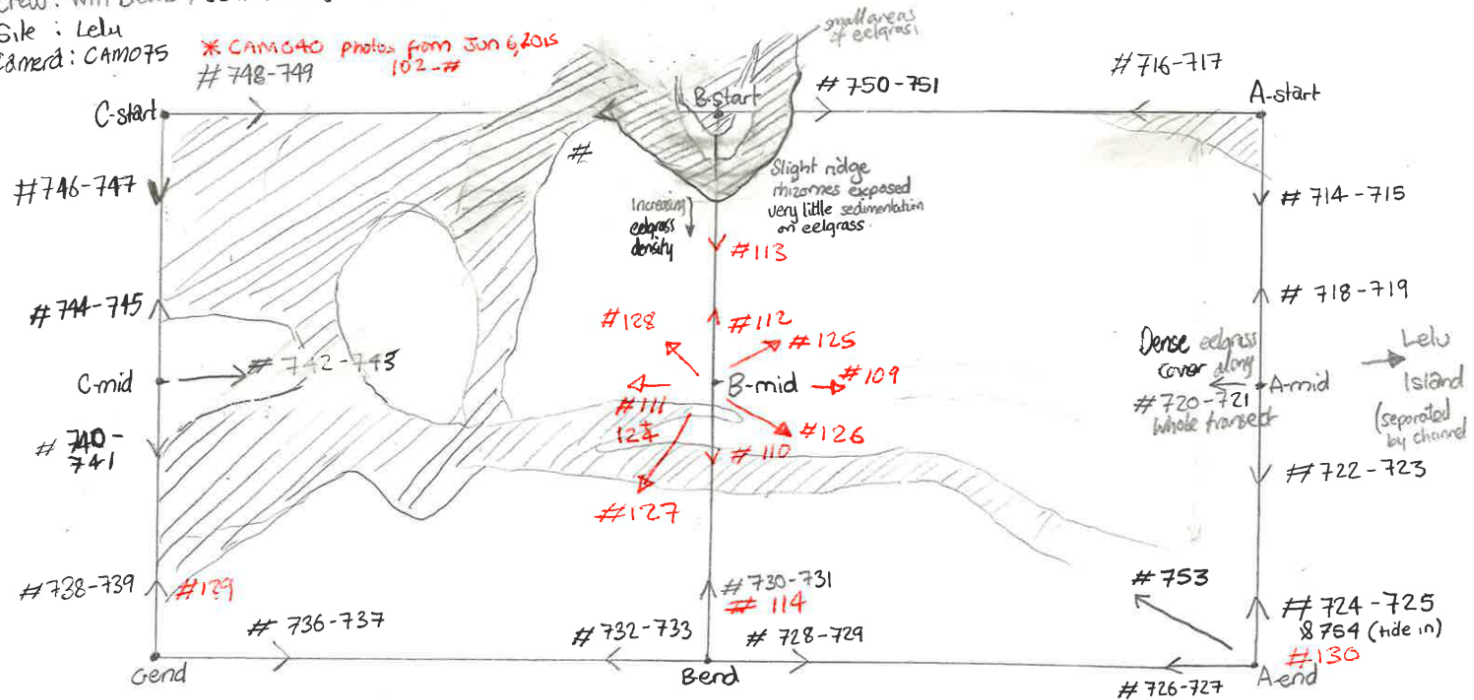 Crew:
Site : Lelu
Camera: CAM075
* CAM040 photos from Jun 6, 2015
102-#
# 748-749
small areas
of eelgrass
# 716-717
C-start
B-start
# 750-751
A-start
#
# 746-747
Slight ridge
rhizomes exposed
very little sedimentation
on eelgrass
# 714-715
Increasing
eelgrass
density
# 113
# 744-745
# 718-719
# 128
# 112
# 125
# 742-743
Dense eelgrass
cover along
# 720-721
whole transect
Lelu
Island
(separated
by channel
C-mid
B-mid
# 109
A-mid
# 111
124
# 740-
741
# 126
# 110
# 722-723
# 127
# 738-739
# 129
# 730-731
# 114
# 753
# 724-725
& 754 (tide in)
# 130
# 736-737
# 732-733
# 728-729
C-end
B-end
A-end
# 726-727